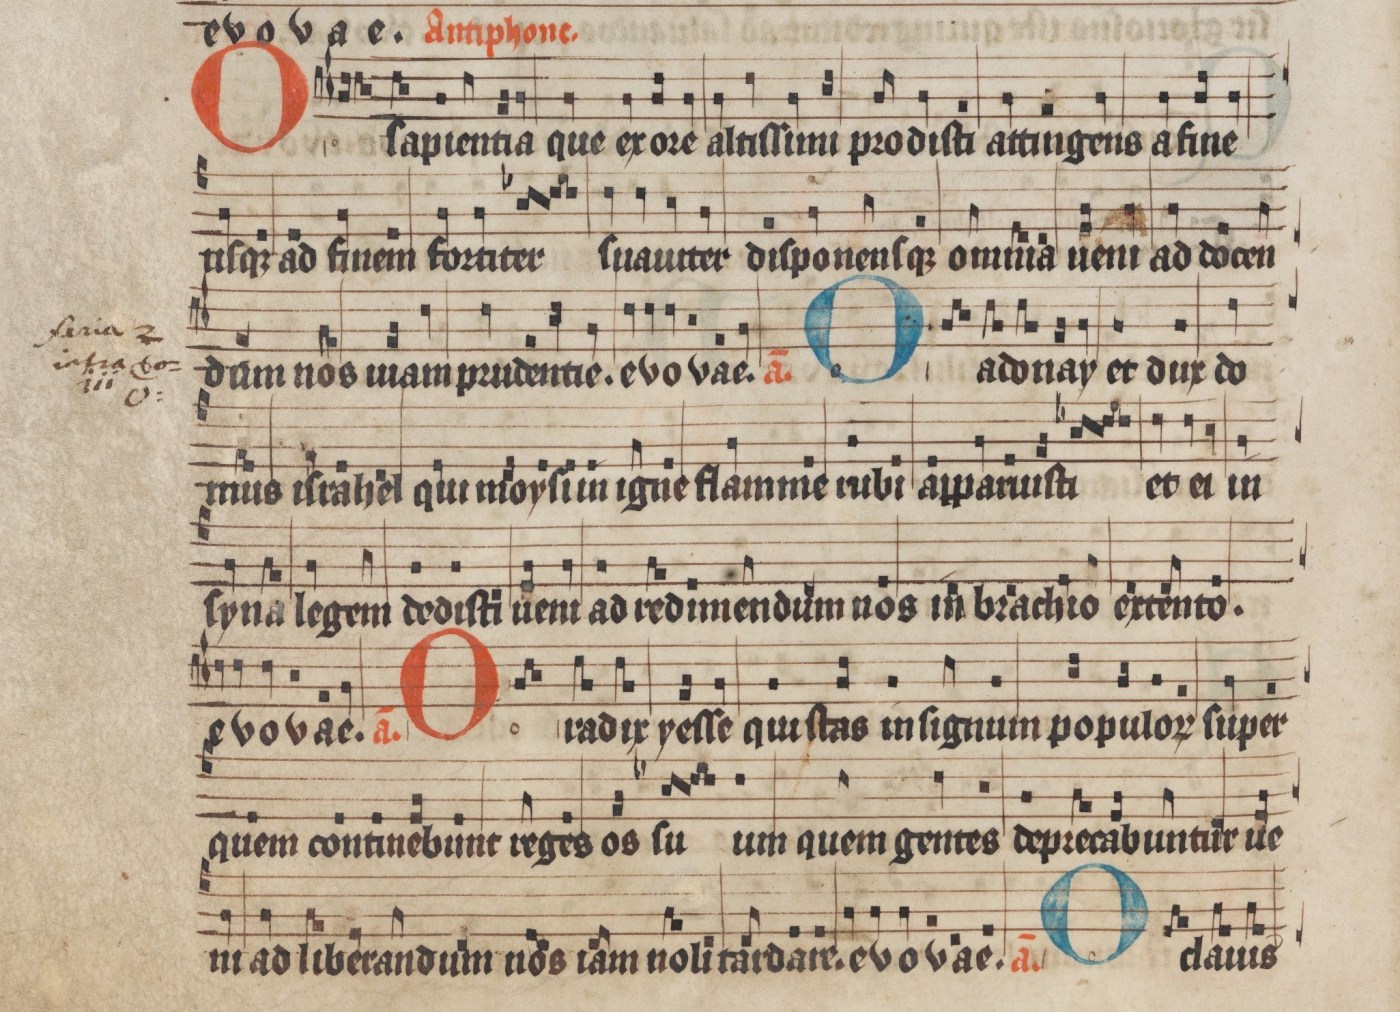 evovae. Antiphone.
O sapientia que ex ore altissimi prodisti attingens a fine
usqꝫ ad finem fortiter suauiter disponensqꝫ omnia ueni ad docen
dum nos uiam prudentie. evovae. a̅. O adonay et dux do
feria 2
iii
O:
mus israhel qui moysi in igne flamme rubi apparuisti et ei in
syna legem dedisti ueni ad redimendum nos in brachio extento.
evovae. a̅. O radix yesse qui stas in signum populoꝝ super
quem continebunt reges os suum quem gentes deprecabuntur ue
ni ad liberandum nos iam noli tardare. evovae. a̅. O clauis